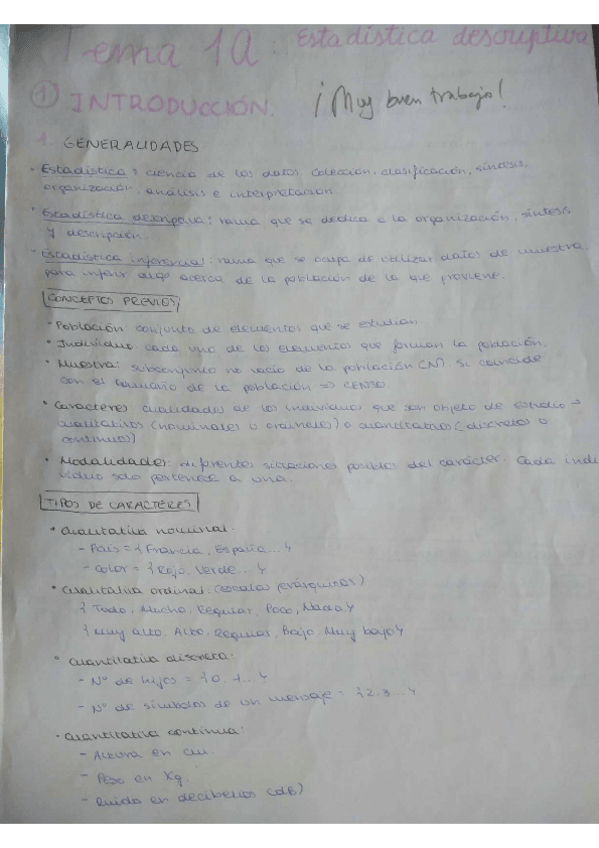 Tema 1A: Estadística descriptiva
① INTRODUCCIÓN. ¡Muy buen trabajo!
1. GENERALIDADES
· Estadística: ciencia de los datos. Colección, clasificación, síntesis,
organización, análisis e interpretación
· Estadística descriptiva: rama que se dedica a la organización, síntesis
y descripción.
· Estadística inferencial: rama que se ocupa de utilizar datos de muestra
para inferir algo acerca de la población de la que proviene.
CONCEPTOS PREVIOS
· Población conjunto de elementos que se estudian
· Individuo: cada uno de los elementos que forman la población.
· Muestra: subconjunto no vacío de la población (N). Si coincide
con el tamaño de la población => CENSO
· Caracteres cualidades de los individuos que son objeto de estudio →
cualitativos (nominales u ordinales) o cuantitativos (discretos o
continuos)
· Modalidades: diferentes situaciones posibles del carácter. Cada indi
viduo solo pertenece a una.
TIPOS DE CARACTERES
· Cualitativa nominal:
- País = { Francia, España... }
- Color = { Rojo, Verde... }
· Cualitativa ordinal: (escalas jerárquicas)
{ Todo, Mucho, Regular, Poco, Nada }
{ Muy alto, Alto, Regular, Bajo, Muy bajo }
· Cuantitativa discreta:
- Nº de hijos = { 0, 1... }
- Nº de símbolos de un mensaje = { 2, 3... }
· Cuantitativa continua:
- Altura en cm.
- Peso en Kg.
- Ruido en decibelios (dB)